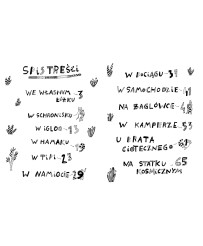 SPIS TREŚCI
WE WŁASNYM
ŁÓŻKU 3
W SCHRONISKU 9
W IGLOO 13
W HAMAKU 19
W TIPI 23
W NAMIOCIE 29
W POCIĄGU 31
W SAMOCHODZIE 41
NA ŻAGLÓWCE 49
W KAMPERZE 53
U BRATA
CIOTECZNEGO 61
NA STATKU 65
KOSMICZNYM